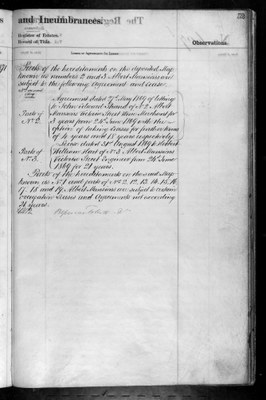 and Incumbrances.
Register of Tenures
Observations.
Parts of the hereditaments on the deposited Map
known as numbers 2 and 3 Albert Mansions are
subject to the following Agreement and Lease
Parts of
No. 2.
Agreement dated 27th May 1869 of letting
to John Edward of No. 2 Albert
Mansions Victoria Street Wine Merchant for
3 years from 24th June 1869 with the
option of taking Leases for further terms
of 4 years and 15 years respectively
Parts of
No. 3.
Lease dated 31st August 1869 to Robert
William of No. 3 Albert Mansions
Victoria Street Engineer from 24th June
1869 for 21 years.
Parts of the hereditaments on the said Map
known as No. 1 and parts of Nos. 2, 12, 13, 14, 15, 16,
17, 18 and 19 Albert Mansions are subject to certain
occupation Leases and Agreements not exceeding
21 years.